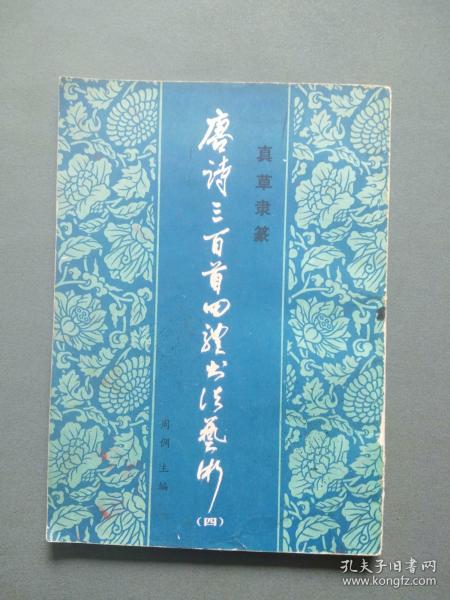 真草隶篆
唐诗三百首四体书法艺术
(四)
周倜主编
孔夫子旧书网
www.kongfz.com